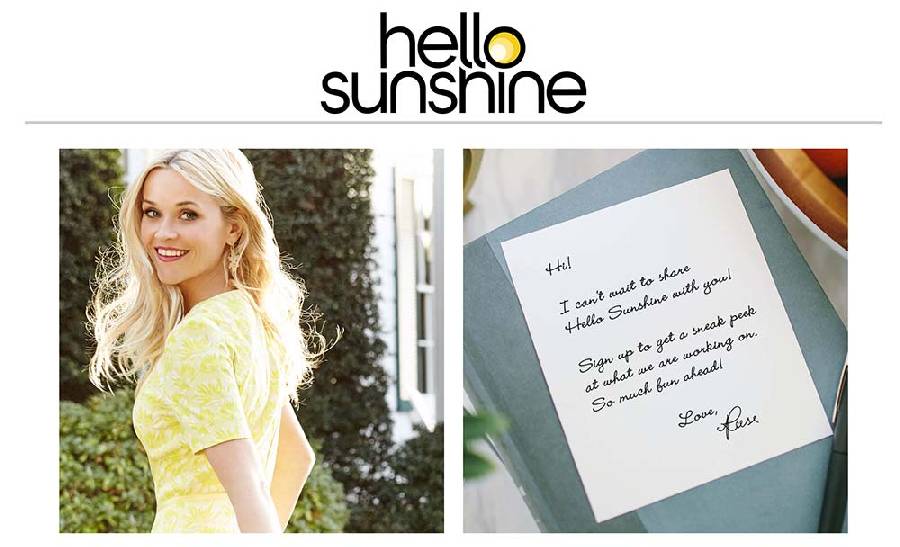 hello
sunshine
Hi!
I can't wait to share
Hello Sunshine with you!
Sign up to get a sneak peek
at what we are working on.
So much fun ahead!
Love,
Reese